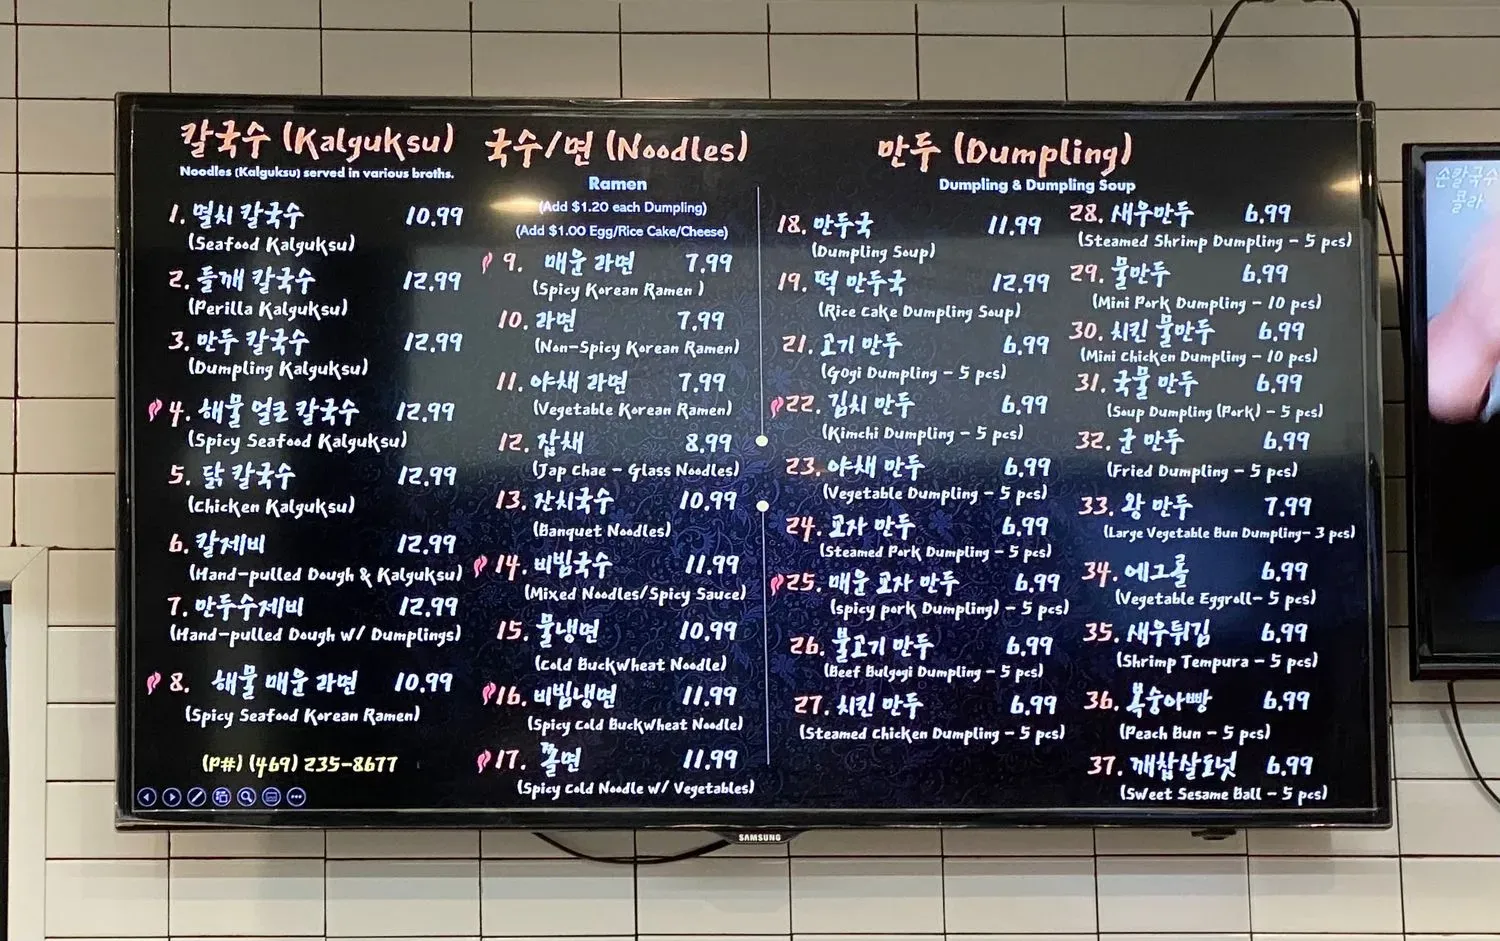 칼국수 (Kalguksu)
Noodles (Kalguksu) served in various broths.
1. 멸치 칼국수 10.99
(Seafood Kalguksu)
2. 들깨 칼국수 12.99
(Perilla Kalguksu)
3. 만두 칼국수 12.99
(Dumpling Kalguksu)
4. 해물 얼큰 칼국수 12.99
(Spicy Seafood Kalguksu)
5. 닭 칼국수 12.99
(Chicken Kalguksu)
6. 칼제비 12.99
(Hand-pulled Dough & Kalguksu)
7. 만두수제비 12.99
(Hand-pulled Dough w/ Dumplings)
8. 해물 매운 라면 10.99
(Spicy Seafood Korean Ramen)
(P#) (469) 235-8677
국수/면 (Noodles)
Ramen
(Add $1.20 each Dumpling)
(Add $1.00 Egg/Rice Cake/Cheese)
9. 매운 라면 7.99
(Spicy Korean Ramen )
10. 라면 7.99
(Non-Spicy Korean Ramen)
11. 야채 라면 7.99
(Vegetable Korean Ramen)
12. 잡채 8.99
(Jap Chae - Glass Noodles)
13. 잔치국수 10.99
(Banquet Noodles)
14. 비빔국수 11.99
(Mixed Noodles/Spicy Sauce)
15. 물냉면 10.99
(Cold Buckwheat Noodle)
16. 비빔냉면 11.99
(Spicy Cold Buckwheat Noodle)
17. 쫄면 11.99
(Spicy Cold Noodle w/ Vegetables)
만두 (Dumpling)
Dumpling & Dumpling Soup
18. 만두국 11.99
(Dumpling Soup)
19. 떡 만두국 12.99
(Rice Cake Dumpling Soup)
21. 고기 만두 6.99
(Gogi Dumpling - 5 pcs)
22. 김치 만두 6.99
(Kimchi Dumpling - 5 pcs)
23. 야채 만두 6.99
(Vegetable Dumpling - 5 pcs)
24. 교자 만두 6.99
(Steamed Pork Dumpling - 5 pcs)
25. 매운 교자 만두 6.99
(spicy pork Dumpling) - 5 pcs)
26. 불고기 만두 6.99
(Beef Bulgogi Dumpling - 5 pcs)
27. 치킨 만두 6.99
(Steamed Chicken Dumpling - 5 pcs)
28. 새우만두 6.99
(Steamed Shrimp Dumpling - 5 pcs)
29. 물만두 6.99
(Mini Pork Dumpling - 10 pcs)
30. 치킨 물만두 6.99
(Mini Chicken Dumpling - 10 pcs)
31. 국물 만두 6.99
(Soup Dumpling (Pork) - 5 pcs)
32. 군 만두 6.99
(Fried Dumpling - 5 pcs)
33. 왕 만두 7.99
(Large Vegetable Bun Dumpling- 3 pcs)
34. 에그롤 6.99
(Vegetable Eggroll- 5 pcs)
35. 새우튀김 6.99
(Shrimp Tempura - 5 pcs)
36. 복숭아빵 6.99
(Peach Bun - 5 pcs)
37. 깨찹쌀도넛 6.99
(Sweet Sesame Ball - 5 pcs)
SAMSUNG
손칼국수
콜라